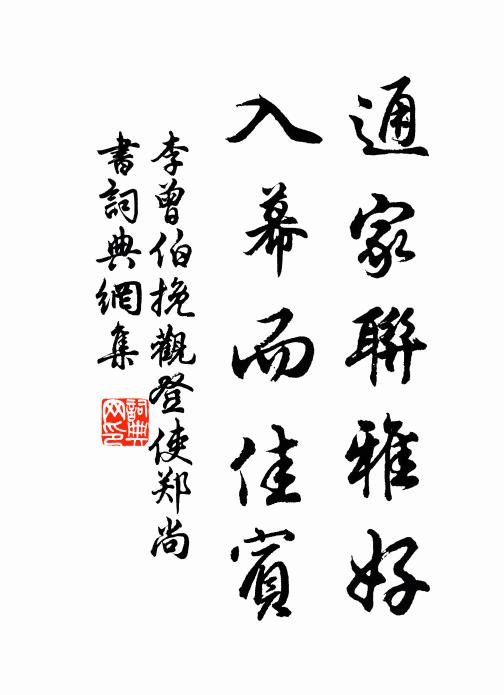 通家聯雅好
入幕而佳賓
李曾伯挽觀登使郑尚
書詞典網集
詞典
网印